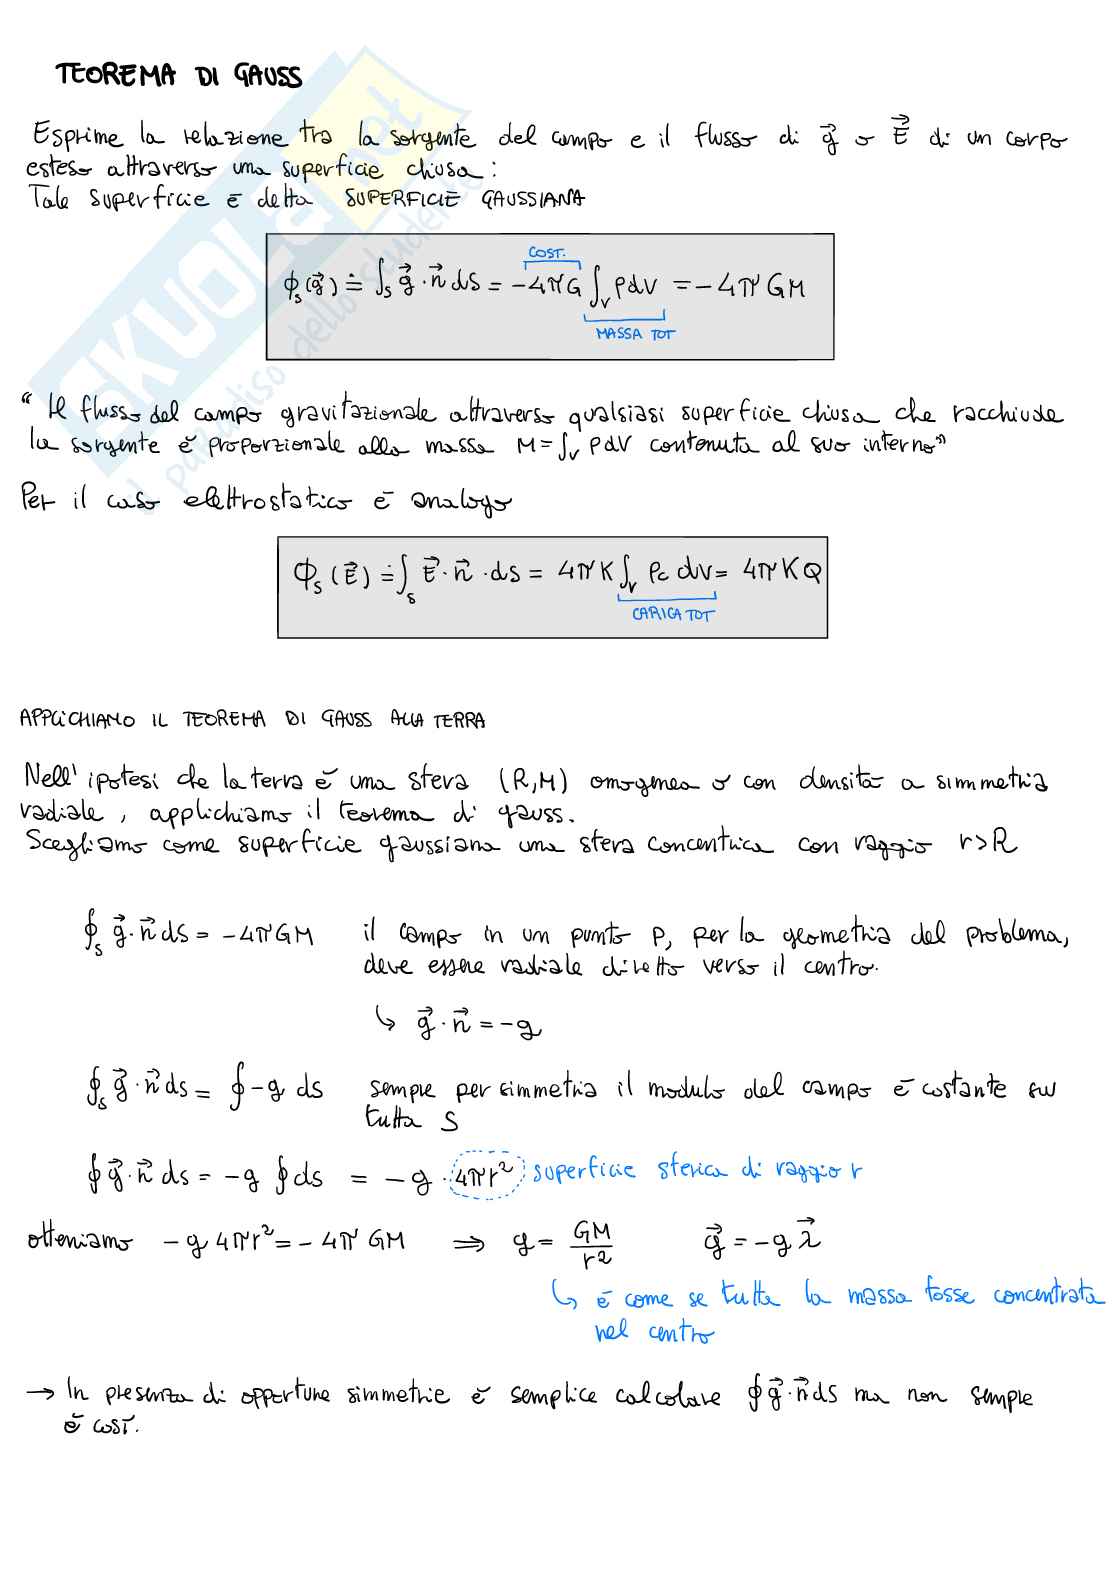 TEOREMA DI GAUSS
Esprime la relazione tra la sorgente del campo e il flusso di g⃗ o E⃗ di un corpo
esteso attraverso una superficie chiusa:
Tale superficie è detta SUPERFICIE GAUSSIANA
COST.
ϕₛ(g⃗) ≐ ∫ₛ g⃗ · n⃗ dS = -4πG ∫ᵥ ρdV = -4πGM
MASSA TOT
"Il flusso del campo gravitazionale attraverso qualsiasi superficie chiusa che racchiude
la sorgente è proporzionale alla massa M=∫ᵥ ρdV contenuta al suo interno"
Per il caso elettrostatico è analogo
Φₛ(E⃗) ≐ ∫ₛ E⃗ · n⃗ · ds = 4πK ∫ᵥ ρc dv = 4πKQ
CARICA TOT
APPLICHIAMO IL TEOREMA DI GAUSS ALLA TERRA
Nell'ipotesi che la terra è una sfera (R,M) omogenea o con densità a simmetria
radiale, applichiamo il teorema di gauss.
Scegliamo come superficie gaussiana una sfera concentrica con raggio r>R
∮ₛ g⃗ · n⃗ dS = -4πGM il campo in un punto P, per la geometria del problema,
deve essere radiale diretto verso il centro.
↳ g⃗ · n⃗ = -g
∮ₛ g⃗ · n⃗ ds = ∮ -g ds sempre per simmetria il modulo del campo è costante su
tutta S
∮ g⃗ · n⃗ ds = -g ∮ ds = -g · 4πr² superficie sferica di raggio r
otteniamo -g 4πr² = -4πGM ⇒ g = GM/r² g⃗ = -g λ⃗
↳ è come se tutta la massa fosse concentrata
nel centro
→ In presenza di opportune simmetrie è semplice calcolare ∮ g⃗ · n⃗ ds ma non sempre
è così.
SKUOLA.net
il paradiso dello studente